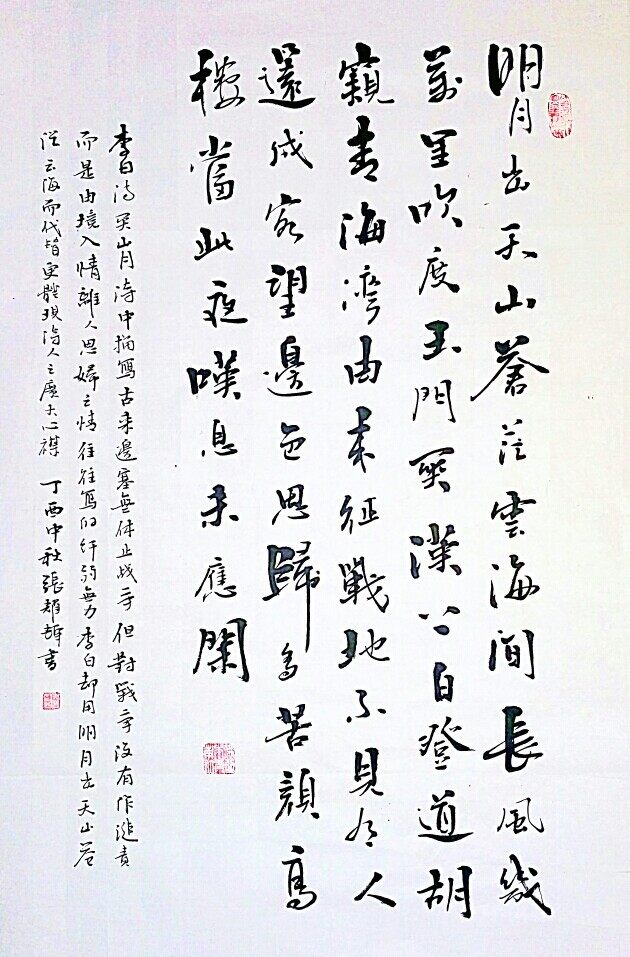 明月出天山蒼茫雲海間長風幾
萬里吹度玉門関漢下白登道胡
窺青海灣由来征戰地不見有人
還戍客望邊色思歸多苦顏高
樓當此夜嘆息未應闌
李白诗关山月诗中描寫古来邊塞無休止战争但對戰争没有作谴责
而是由境入情離人思婦之情往往寫的纤弱無力李白却用明月出天山苍
茫云海而代更體现诗人之廣大心襟 丁酉中秋張耀辉書